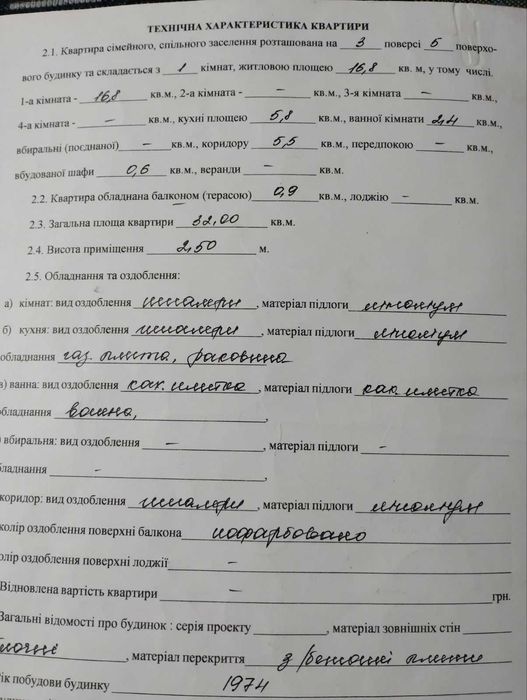 ТЕХНІЧНА ХАРАКТЕРИСТИКА КВАРТИРИ
2.1. Квартира сімейного, спільного заселення розташована на 3 поверсі 5 поверхо-
вого будинку та складається з 1 кімнат, житловою площею 16,8 кв. м, у тому числі.
1-а кімната - 16,8 кв.м., 2-а кімната - – кв.м., 3-я кімната – кв.м.,
4-а кімната - – кв.м., кухні площею 5,8 кв.м., ванної кімнати 2,4 кв.м.,
вбиральні (поєднаної) – кв.м., коридору 5,5 кв.м., передпокою – кв.м.,
вбудованої шафи 0,6 кв.м., веранди – кв.м.
2.2. Квартира обладнана балконом (терасою) 0,9 кв.м., лоджію – кв.м.
2.3. Загальна площа квартири 32,00 кв.м.
2.4. Висота приміщення 2,50 м.
2.5. Обладнання та оздоблення:
а) кімнат: вид оздоблення шпалери, матеріал підлоги лінолеум
б) кухня: вид оздоблення шпалери, матеріал підлоги лінолеум
обладнання газ. плита, раковина
в) ванна: вид оздоблення как. плитка, матеріал підлоги как. плитка
обладнання ванна,
вбиральня: вид оздоблення –, матеріал підлоги –
ладнання –
коридор: вид оздоблення шпалери, матеріал підлоги лінолеум
колір оздоблення поверхні балкона пофарбовано
олір оздоблення поверхні лоджії –
Відновлена вартість квартири – грн.
Загальні відомості про будинок : серія проекту, матеріал зовнішніх стін
блочні, матеріал перекриття з/бетонні плити
ік побудови будинку 1974